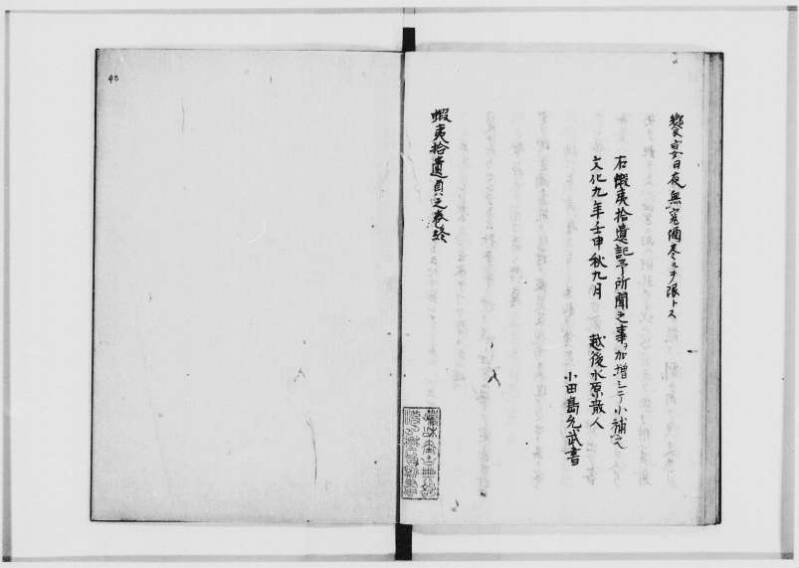 饗宴日夜無寛酒尽ルヲ限トス
右蝦夷拾遺記予所聞之事ヲ加増シテ小補ス
文化九年壬申秋九月
越後水原散人
小田島允武書
蝦夷拾遺貞之巻終